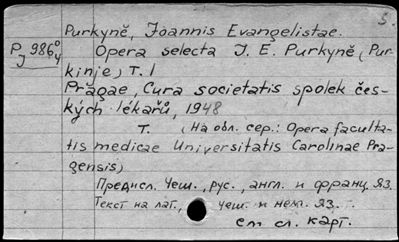 5.
Purkyně, Joannis Evangelistae.
P 986⁰/4 Opera selecta J. E. Purkyně (Pur-
J kinje) T. 1
Pragae, Cura societatis spolek čes-
kých lékařů, 1948
T. (На обл. сер.: Opera faculta-
tis medicae Universitatis Carolinae Pra-
gensis)
Предисл. Чеш., рус., англ. и франц. яз.
Текст на лат., чеш. и нем. яз.
см сл. карт.